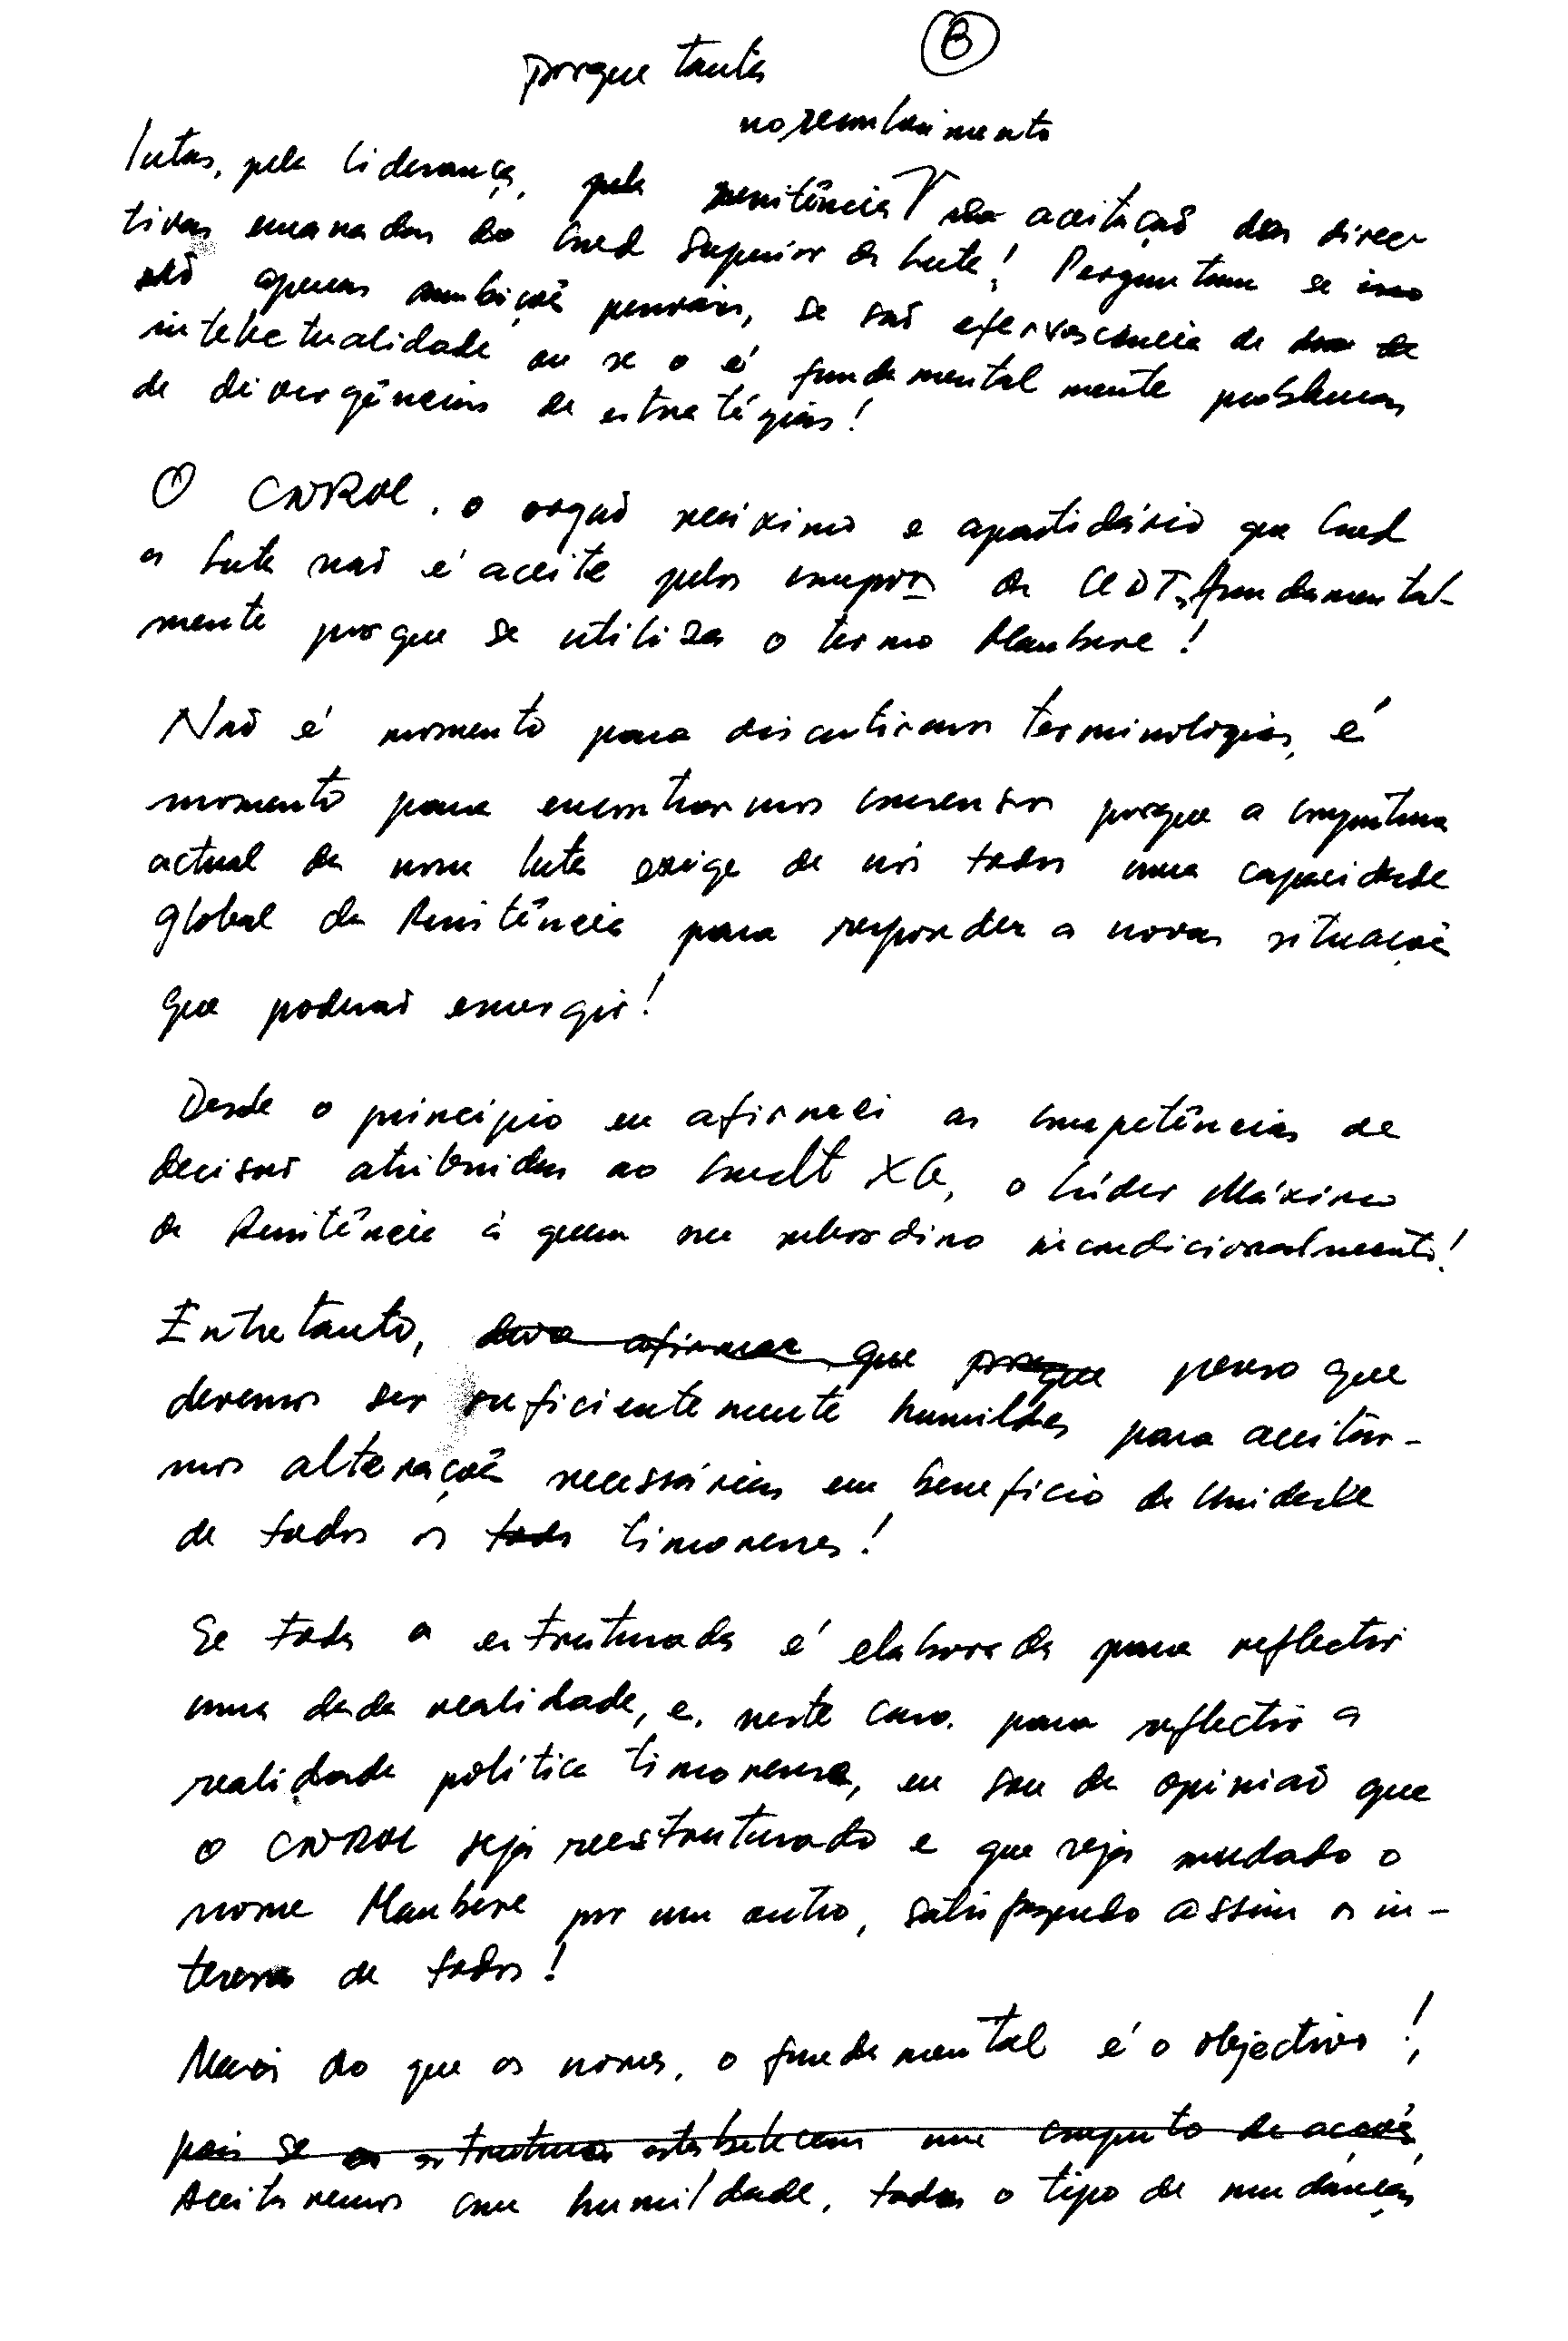 porque tanta
B
no reconhecimento
lutas, pela liderança, pela resistência não aceitação das direc-
tivas emanadas do Cmd Superior da Luta! Perguntam se isso
são apenas ambições pessoais, se são efervescência de dom de
intelectualidade ou se o é fundamentalmente problemas
de divergências de estratégias!
O CNRM, o orgão máximo e apartidário que Cmd
a Luta não é aceite pelos compos da UDT, fundamental-
mente porque se utiliza o termo Maubere!
Não é momento para discutirmos terminologias, é
momento para encontrarmos consensos porque a conjuntura
actual da nossa luta exige de nós todos uma capacidade
global da Resistência para responder a novas situações
que poderão emergir!
Desde o princípio eu afirmei as competências de
decisão atribuidas ao Cmdt XG, o Líder Máximo
da Resistência à quem me subordino incondicionalmente!
Entretanto, devo afirmar que porque penso que
devemos ser suficientemente humildes para aceitar-
mos alterações necessárias em benefício da Unidade
de todos os todos timorenses!
Se toda a estruturada é elaborada para reflectir
uma dada realidade, e, neste caso, para reflectir a
realidade política timorense, eu sou da opinião que
o CNRM seja reestruturado e que seja mudado o
nome Maubere por um outro, satisfazendo assim os in-
teresse de todos!
Mais do que os nomes, o fundamental é o objectivo!,
pois se as estruturas estabelecem um conjunto de acções,
Aceitaremos com humildade, todas o tipo de mudanças